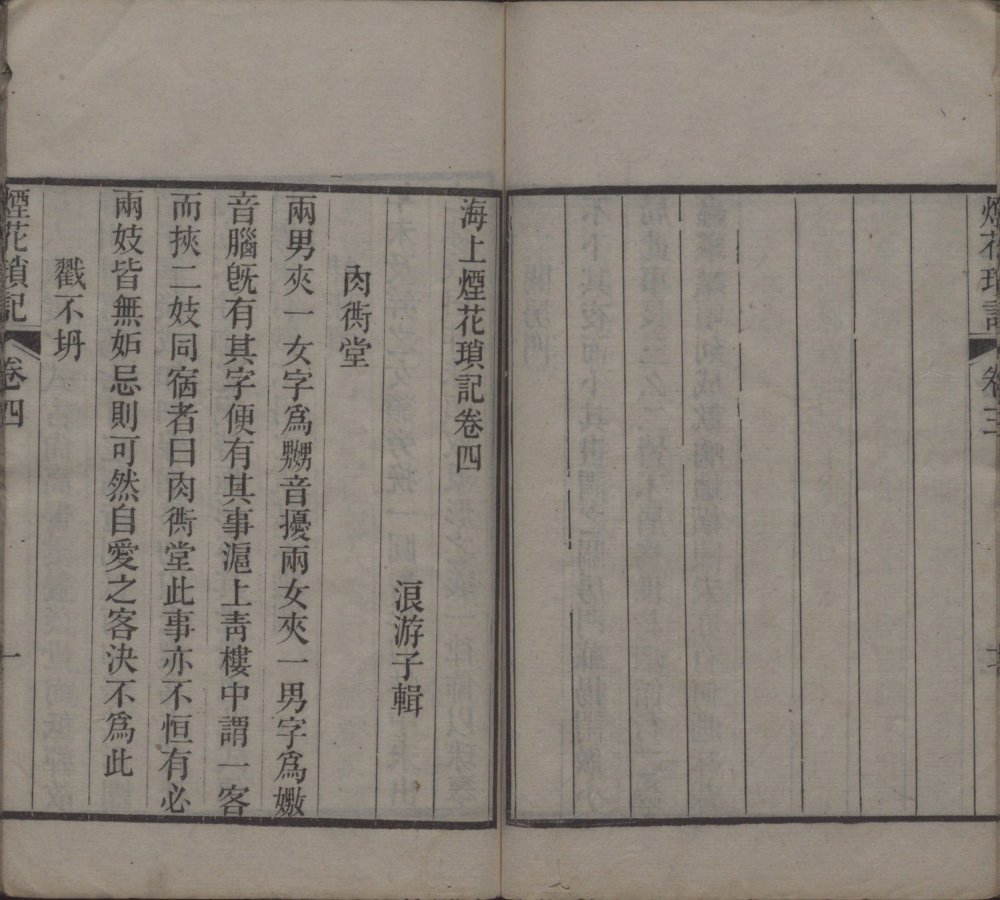 煙花瑣記
卷三
海上煙花瑣記卷四
浪游子輯
肉衖堂
兩男夾一女字爲嬲音擾兩女夾一男字爲嫐
音腦旣有其字便有其事滬上靑樓中謂一客
而挾二妓同宿者曰肉衖堂此事亦不恒有必
兩妓皆無妬忌則可然自愛之客決不爲此
戳不坍
煙花瑣記
卷四
一